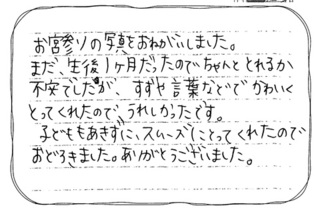 お宮参りの写真をおねがいしました。
まだ、生後1ヶ月だったのでちゃんととれるか
不安でしたが、すずや言葉などでかわいく
とってくれたので、うれしかったです。
子どももあきずに、スムーズにとってくれたので
おどろきました。ありがとうございました。